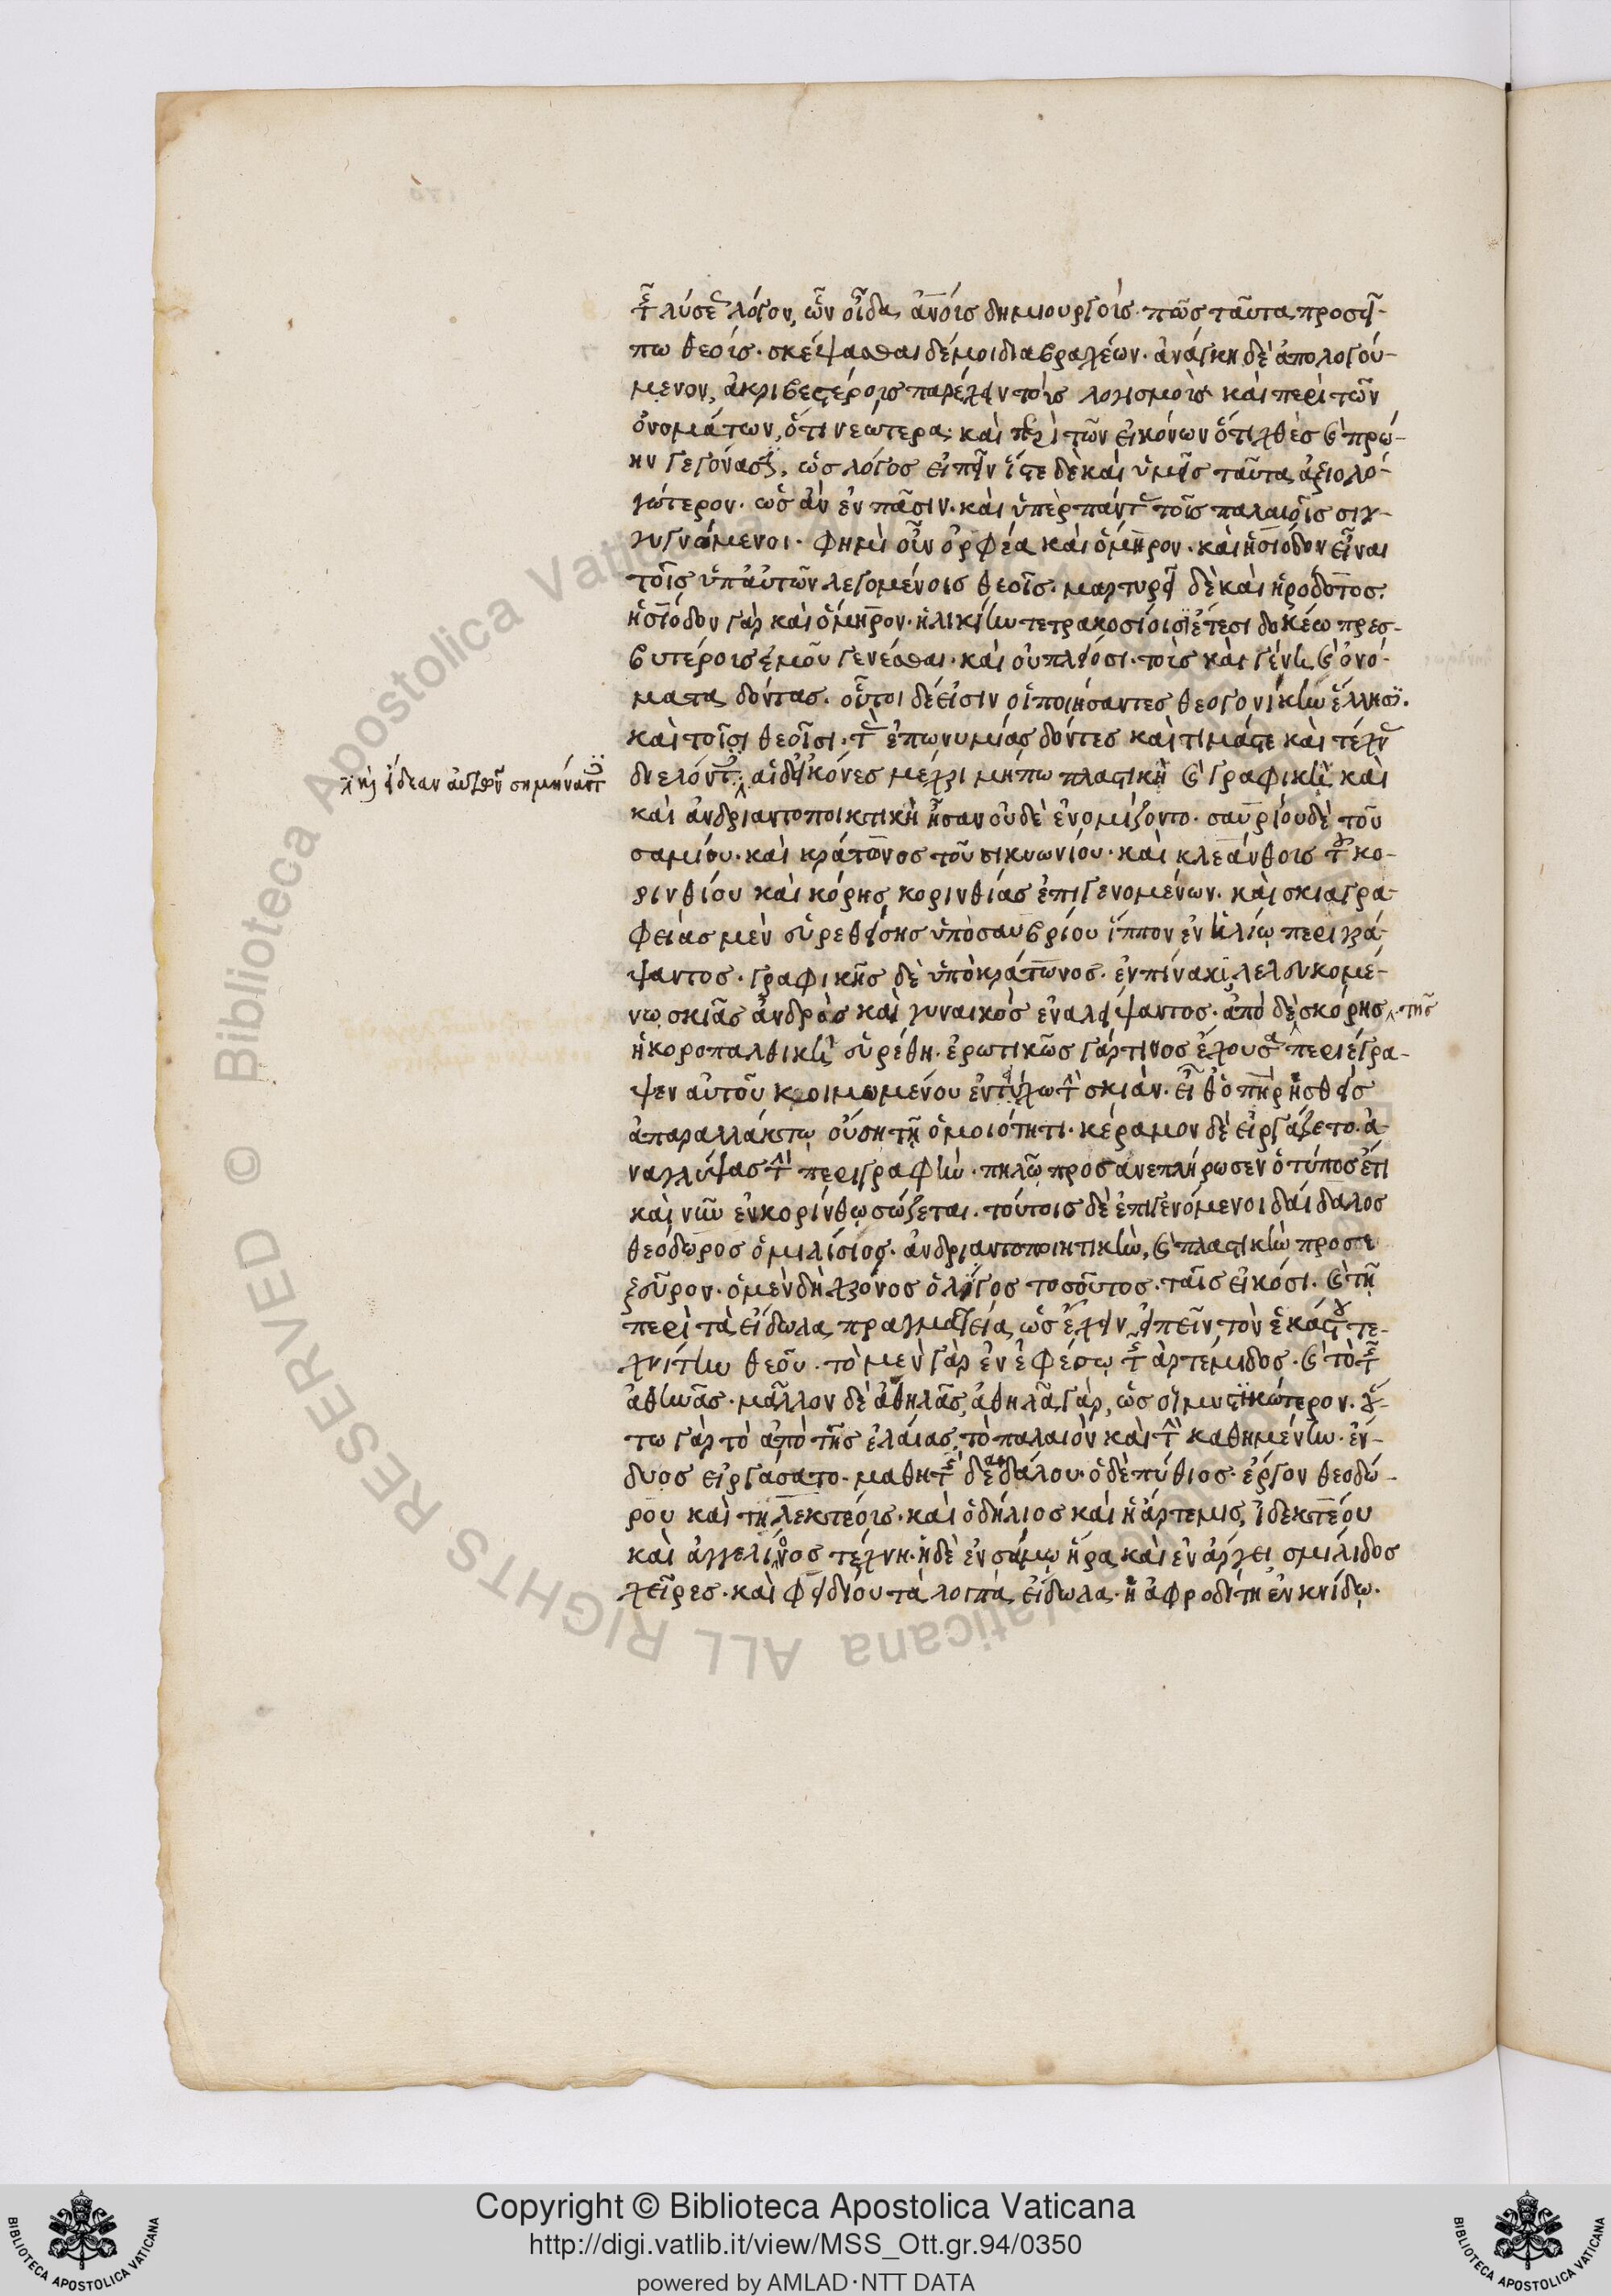 τῆς λύσεως λόγον, ὧν οἶδα ἀνοις δημιουργοῖς· πῶς ταῦτα προσεῖ-
πω θεοῖς· σκέψασθαι δέ μοι διαβραχέων· ἀνάγκη δὲ ἀπολογού-
μενον, ἀκριβεστέροις παρέχειν τοῖς λογισμοῖς καὶ περὶ τῶν
ὀνομάτων, ὅτι νεωτερα· καὶ περὶ τῶν εἰκόνων ὅτι χθὲς καὶ πρώ-
ην γεγόνασι, ὡς λόγος εἰπεῖν ἴστε δὲ καὶ ὑμεῖς ταῦτα ἀξιολο-
γώτερον· ὡς ἂν ἐν πᾶσιν· καὶ ὑπὲρ πάντας τοῖς παλαιοῖς συγ-
γιγνόμενοι· φημὶ οὖν ὀρφέα καὶ ὅμηρον· καὶ ἡσιόδον εἶναι
τοῖς ὑπ αὐτῶν λεγομένοις θεοῖς· μαρτυρεῖ δὲ καὶ ἡρόδοτος·
ἡσιόδον γὰρ καὶ ὅμηρον· ἡλικίην τετρακοσίοισι ἔτεσι δοκέω πρεσ-
βυτέροις ἐμοῦ γενέσθαι· καὶ οὐ πλείοσι· τοῖς καὶ γένη καὶ ὀνό-
ματα δόντας· οὗτοι δέ εἰσιν οἱ ποιήσαντες θεογονίην ἕλλησι·
καὶ τοῖσι θεοῖσι· τὰς ἐπωνυμίας δόντες καὶ τιμάς τε καὶ τέχνας
διελόντες· αἱ δ εἰκόνες μέχρι μήπω πλαστικὴ καὶ γραφικὴ καὶ
καὶ εἴδεα αὐτῶν σημήναντες
καὶ ἀνδριαντοποιητικὴ ἦσαν οὐδὲ ἐνομίζοντο· σαυρίου δὲ τοῦ
σαμίου· καὶ κράτωνος τοῦ σικυωνίου· καὶ κλεάνθοις τοῦ κο-
ρινθίου καὶ κόρης κορινθίας ἐπιγενομένων· καὶ σκιαγρα-
φείας μὲν εὑρεθείσης ὑπὸ σαυρίου ἵππον ἐν ἡλίῳ περιγρά-
ψαντος· γραφικῆς δὲ ὑπὸ κράτωνος· ἐν πίνακι λελευκομέ-
νῳ σκιᾶς ἀνδρὸς καὶ γυναικὸς ἐναλείψαντος· ἀπὸ δὲ τῆς κόρης
ἡ κοροπλαθικὴ εὑρέθη· ἐρωτικῶς γάρ τινος ἔχουσα περιέγρα-
ψεν αὐτοῦ κοιμωμένου ἐν τείχω τὴν σκιάν· εἶθ ὁ πηρ ἡσθεὶς
ἀπαραλλάκτῳ οὔσῃ τῇ ὁμοιότητι· κέραμον δὲ εἰργάζετο· ἀ-
ναγλύψας τὴν περιγραφὴν· πηλῷ προσανεπλήρωσεν ὁ τύπος ἔτι
καὶ νῦν ἐν κορίνθῳ σώζεται· τούτοις δὲ ἐπιγενόμενοι δαίδαλος
θεόδωρος ὁ μιλίσιος· ἀνδριαντοποιητικὴν, καὶ πλαστικὴν προσε
ξεῦρον· ὁ μὲν δὴ χρόνος ὀλίγος τοσοῦτος· ταῖς εἰκόσι· καὶ τῇ
περὶ τὰ εἴδωλα πραγματεία ὡς ἔχειν εἰπεῖν, τὸν ἑκάστου τε-
χνίτην θεοῦ· τὸ μὲν γὰρ ἐν ἐφέσῳ τῆς ἀρτέμιδος· καὶ τὸ τῆς
ἀθηνᾶς· μᾶλλον δὲ ἀθηλᾶς, ἀθηλᾶ γάρ, ὡς οἱ μυστικώτερον· οὕ-
τω γὰρ τὸ ἀπὸ τῆς ἐλαίας, τὸ παλαιὸν καὶ τὴν καθημένην· ἐν-
δυος εἰργάσατο· μαθητὴς δεδάλου· ὁ δὲ πύθιος· ἔργον θεοδώ-
ρου καὶ τηλεκτέοις· καὶ ὁ δήλιος καὶ ἡ ἄρτεμις, ἰδεκτέου
καὶ ἀγγελίονος τέχνη· ἡ δὲ ἐν σάμῳ ἥρα καὶ ἐν ἄργει σμίλιδος
χεῖρες· καὶ φειδίου τὰ λοιπὰ εἴδωλα· ἡ ἀφροδίτη ἐν κνίδῳ·
Copyright © Biblioteca Apostolica Vaticana
http://digi.vatlib.it/view/MSS_Ott.gr.94/0350
powered by AMLAD·NTT DATA